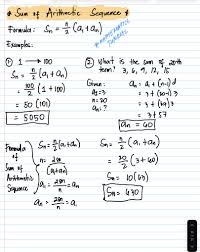 * Sum of Arithmetic Sequence *
Formula: Sn = n/2 (a₁ + an)
Examples:
① 1 → 100
Sn = n/2 (a₁ + an)
= 100/2 (1 + 100)
= 50 (101)
= 5050
② What is the sum of 20th
term? 3, 6, 9, 12, 15
Given:
a₁ = 3
n = 20
an = ?
an = a₁ + (n-1)d
= 3 + (20-1)3
= 3 + (19)3
= 3 + 57
an = 60
Formula
of
Sum of
Arithmetic
Sequence
Sn = n/2 (a₁ + an)
n = 2Sn/(a₁ + an)
a₁ = 2Sn/n - an
an = 2Sn/n - a₁
Sn = n/2 (a₁ + an)
= 20/2 (3 + 60)
Sn = 10 (63)
Sn = 630